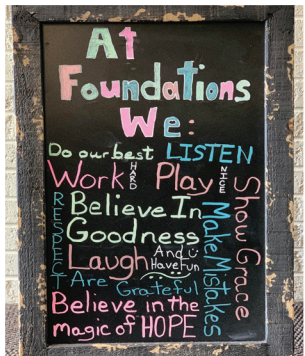 At
Foundations
We:
Do our best
LISTEN
Work HARD
Play NICE
RESPECT
Believe In
Goodness
Show Grace
Make Mistakes
Laugh And Have fun
Are Grateful
Believe in the
magic of HOPE